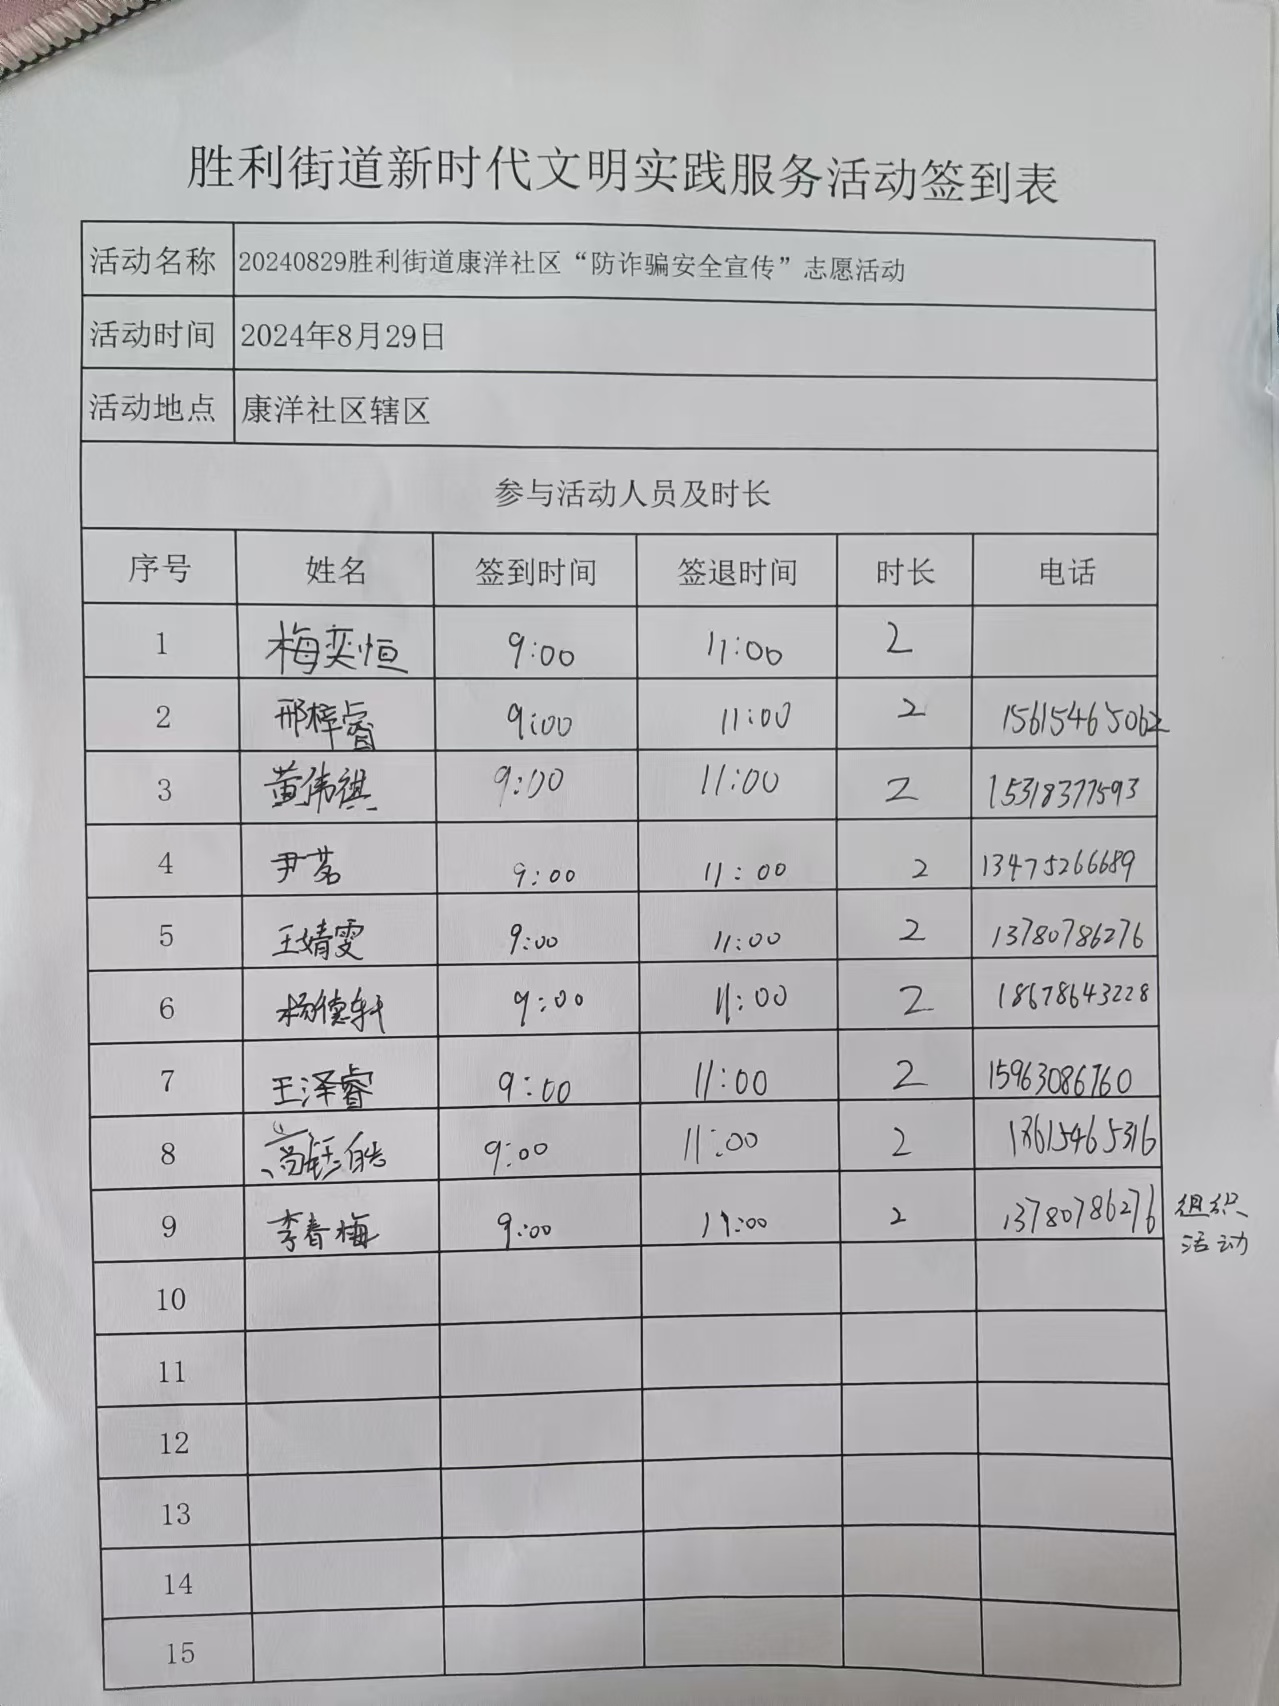 胜利街道新时代文明实践服务活动签到表
活动名称 20240829胜利街道康洋社区“防诈骗安全宣传”志愿活动
活动时间 2024年8月29日
活动地点 康洋社区辖区
参与活动人员及时长
序号 姓名 签到时间 签退时间 时长 电话
1 梅奕恒 9:00 11:00 2
2 邢梓睿 9:00 11:00 2 15615465062
3 黄伟祺 9:00 11:00 2 15318377593
4 尹茗 9:00 11:00 2 13475266689
5 王婧雯 9:00 11:00 2 13780786276
6 杨德轩 9:00 11:00 2 18678643228
7 王泽睿 9:00 11:00 2 15963086760
8 皓 9:00 11:00 2
9 李春梅 9:00 11:00 2 13780786276 组织
活动
10
11
12
13
14
15